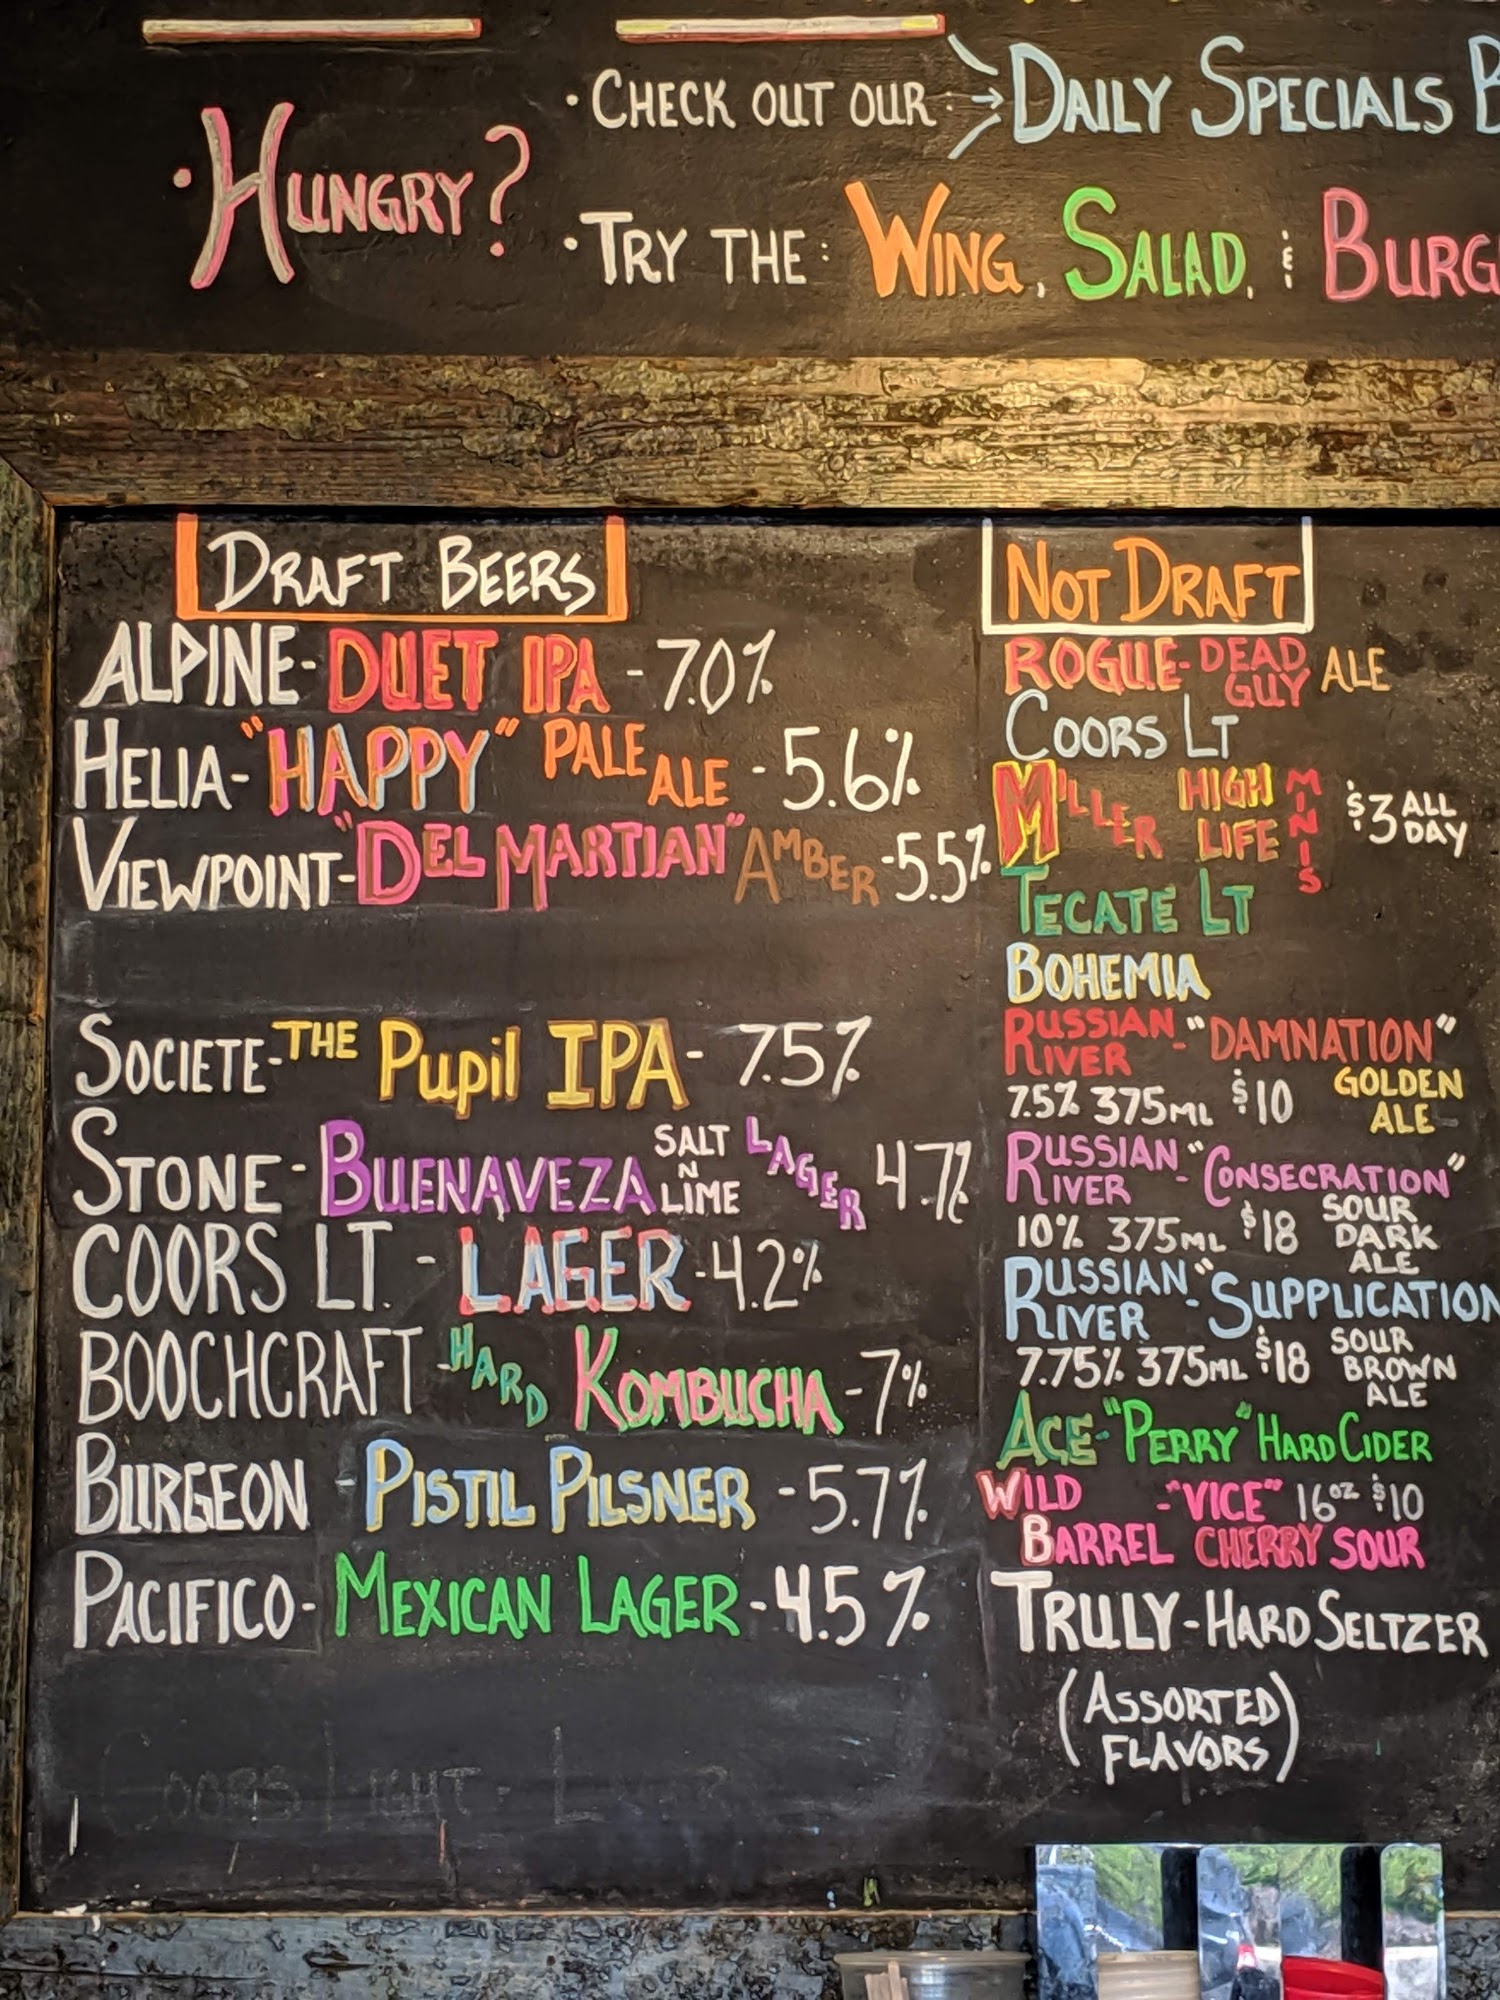 • HUNGRY?
• CHECK OUT OUR → DAILY SPECIALS
• TRY THE: WING, SALAD, & BURG
DRAFT BEERS
ALPINE - DUET IPA - 7.0%
HELIA - "HAPPY" PALE ALE - 5.6%
VIEWPOINT - "DEL MARTIAN" AMBER - 5.5%
SOCIETE - THE Pupil IPA - 7.5%
STONE - BUENAVEZA SALT N LIME LAGER 4.7%
COORS LT. - LAGER - 4.2%
BOOCHCRAFT - HARD KOMBUCHA - 7%
BURGEON - PISTIL PILSNER - 5.7%
PACIFICO - MEXICAN LAGER - 4.5%
COORS LIGHT - LAGER
NOT DRAFT
ROGUE - DEAD GUY ALE
COORS LT
MILLER HIGH LIFE MINIS $3 ALL DAY
TECATE LT
BOHEMIA
RUSSIAN RIVER - "DAMNATION"
7.5% 375ML $10 GOLDEN ALE
RUSSIAN RIVER - "CONSECRATION"
10% 375ML $18 SOUR DARK ALE
RUSSIAN RIVER - "SUPPLICATION
7.75% 375ML $18 SOUR BROWN ALE
ACE - "PERRY" HARD CIDER
WILD BARREL - "VICE" 16oz $10
CHERRY SOUR
TRULY - HARD SELTZER
(ASSORTED FLAVORS)